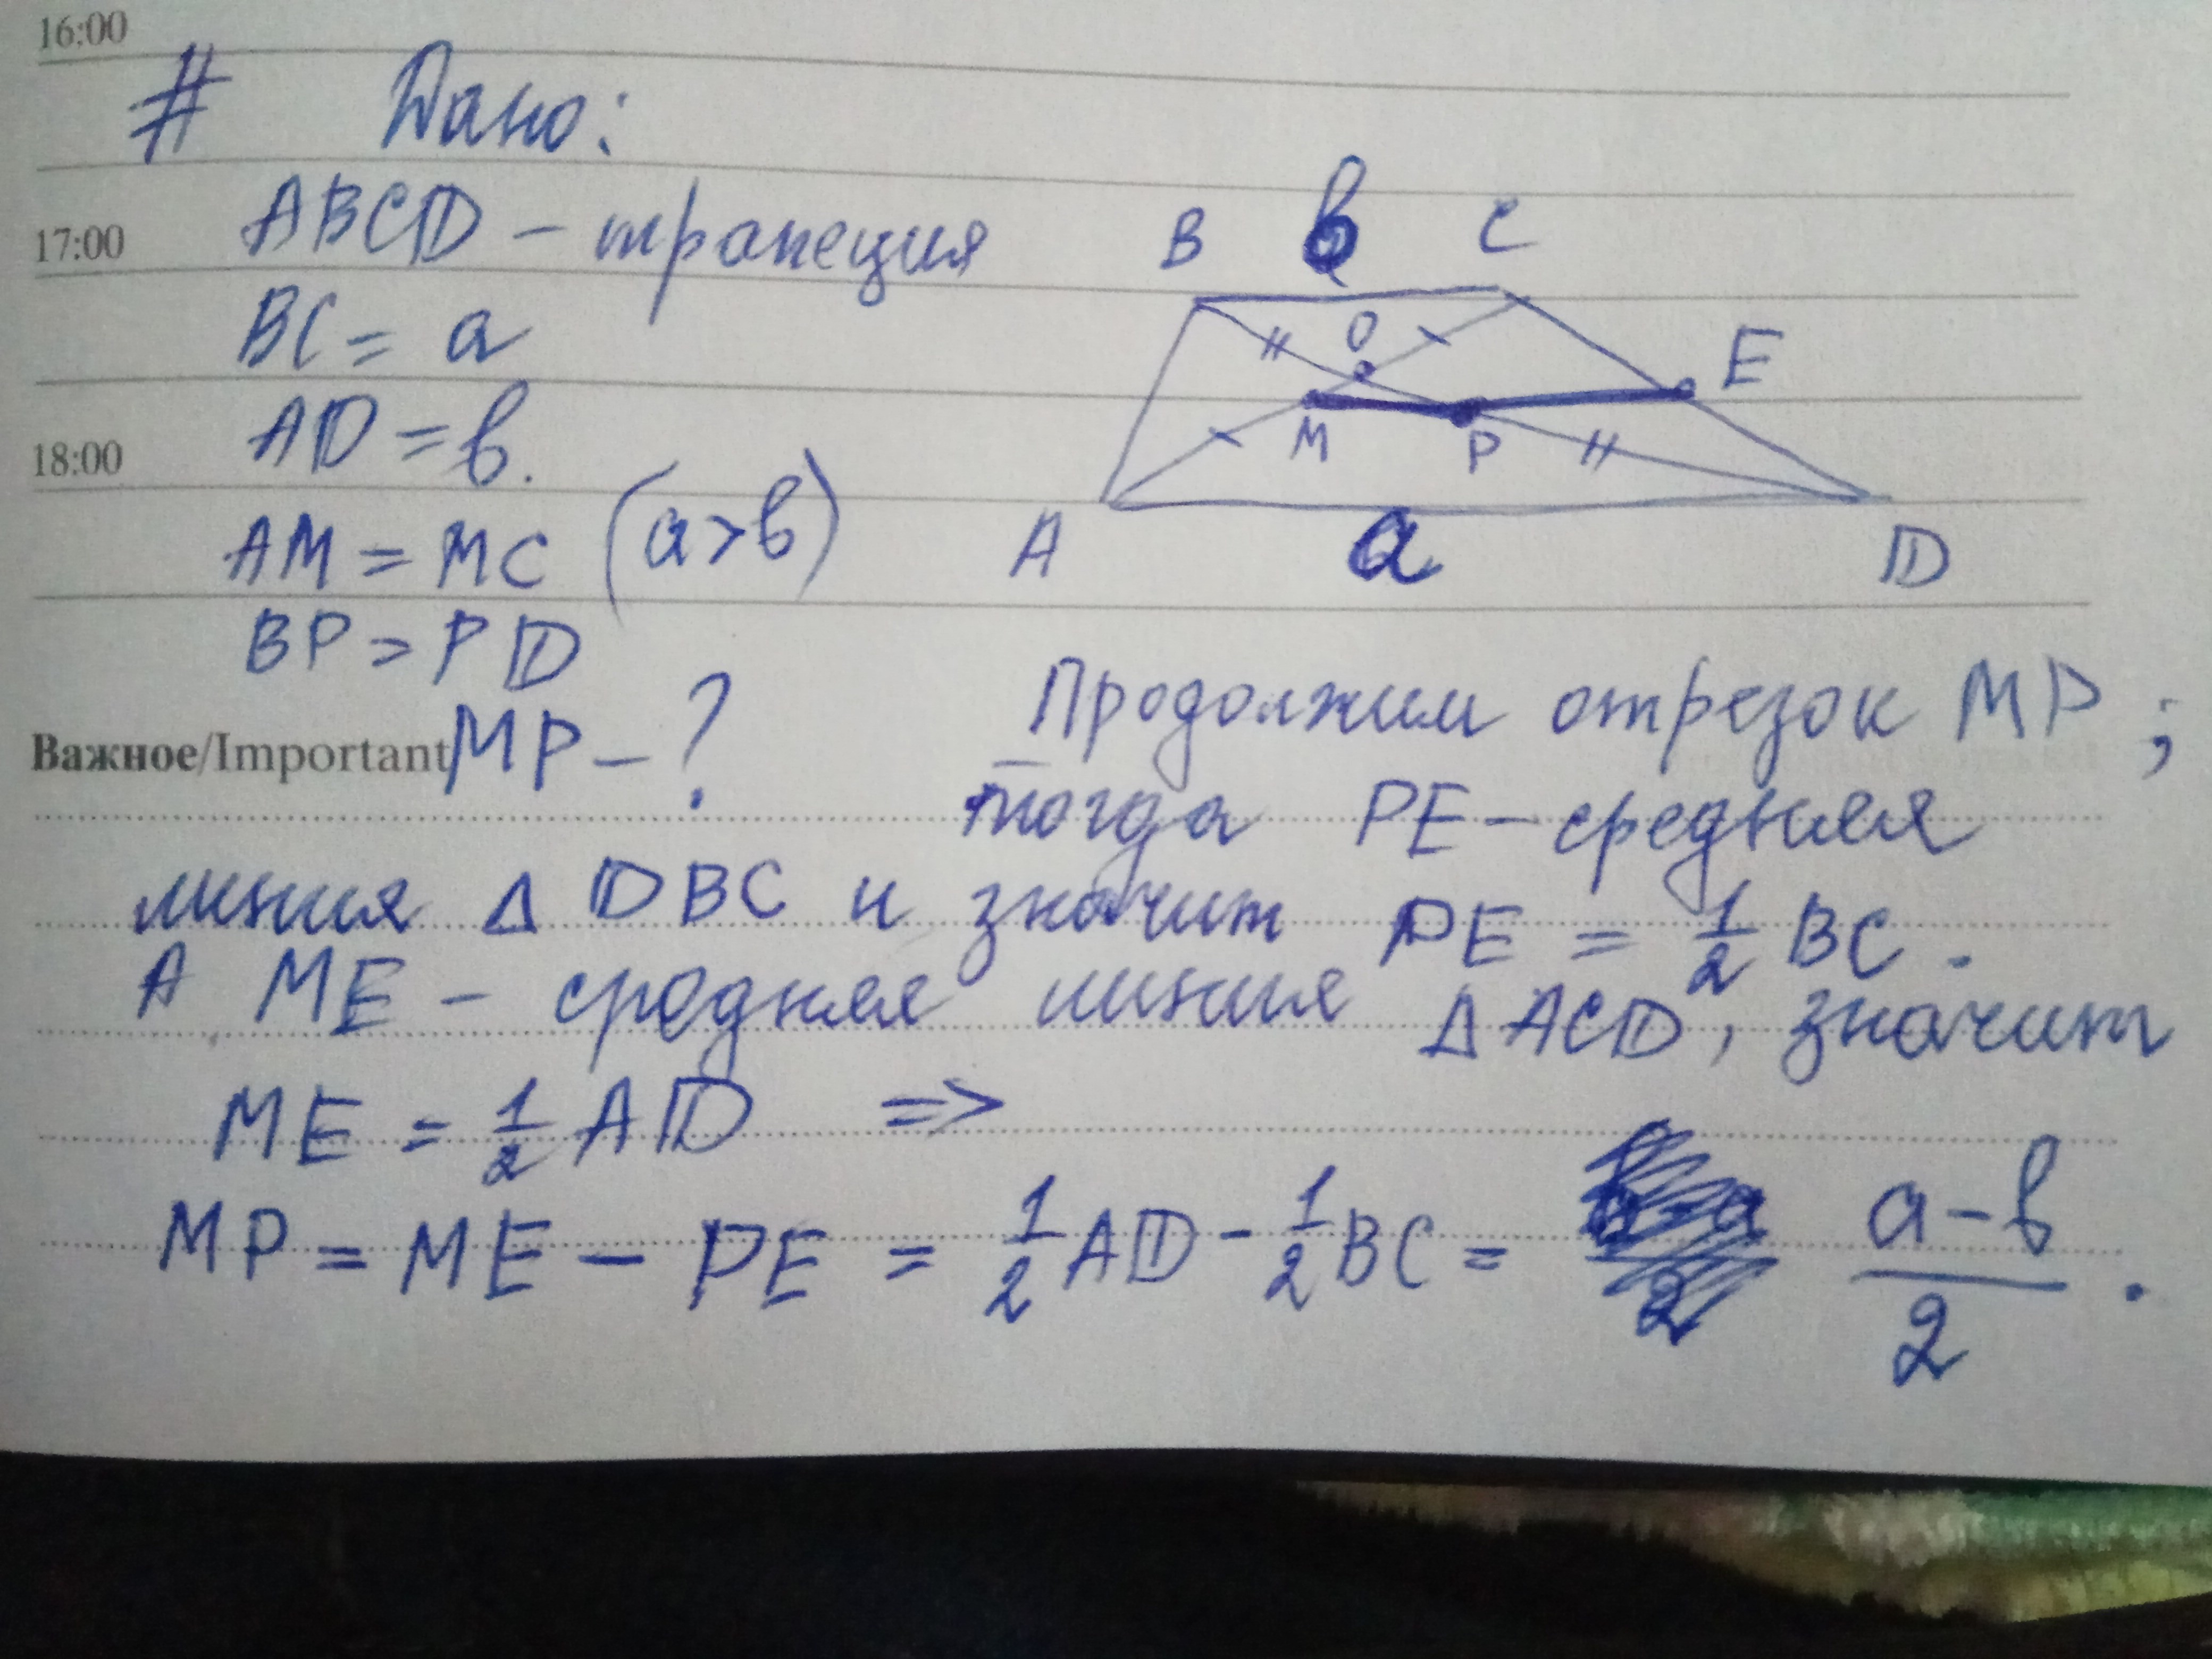 16:00
# Дано:
17:00 ABCD – трапеция
B в C
BC = a
O E
AD = в.
18:00
M P
AM = MC (a>в)
A a D
BP = PD
Продолжим отрезок MP;
Важное/Important MP – ?
тогда PE – средняя
линия Δ DBC и значит PE = 1/2 BC.
А ME – средняя линия Δ ACD, значит
ME = 1/2 AD =>
MP = ME – PE = 1/2 AD – 1/2 BC = a–в/2.